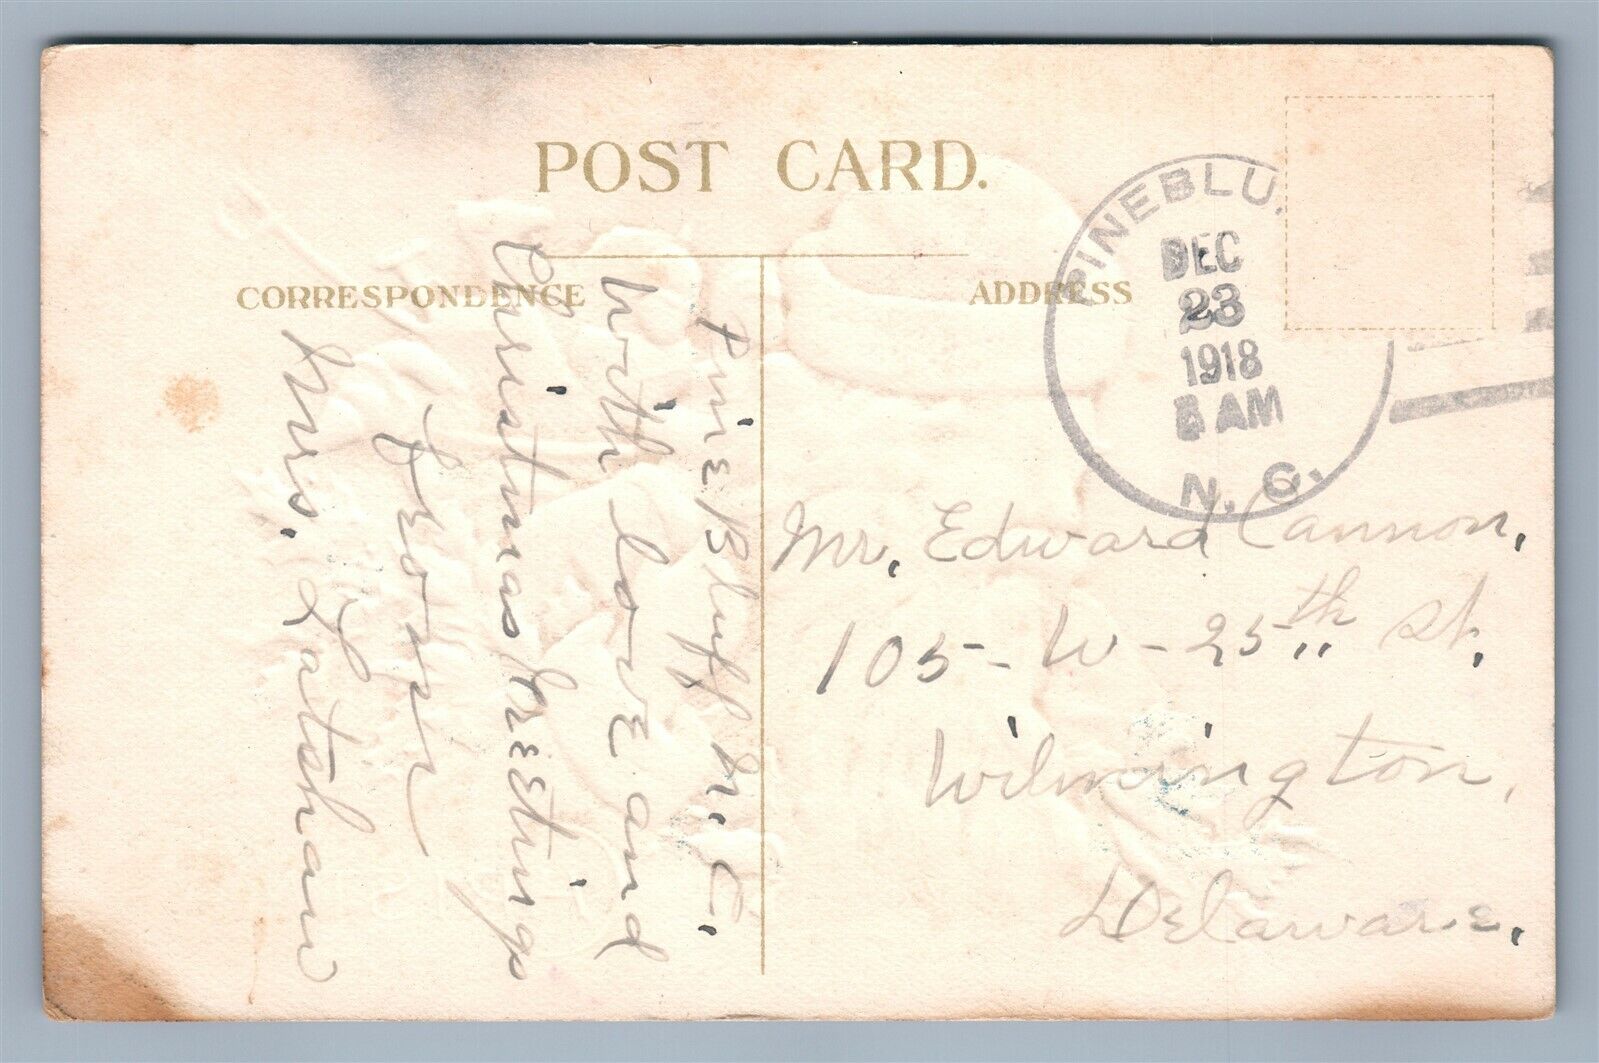 POST CARD.
CORRESPONDENCE
ADDRESS
PINEBLU
DEC
23
1918
AM
N. C.
Pine Bluff N.C.
With love and
Christmas Greetings
from
Mrs. Latshaw
Mr. Edward Cannon,
105- W - 25th St,
Wilmington,
Delaware,